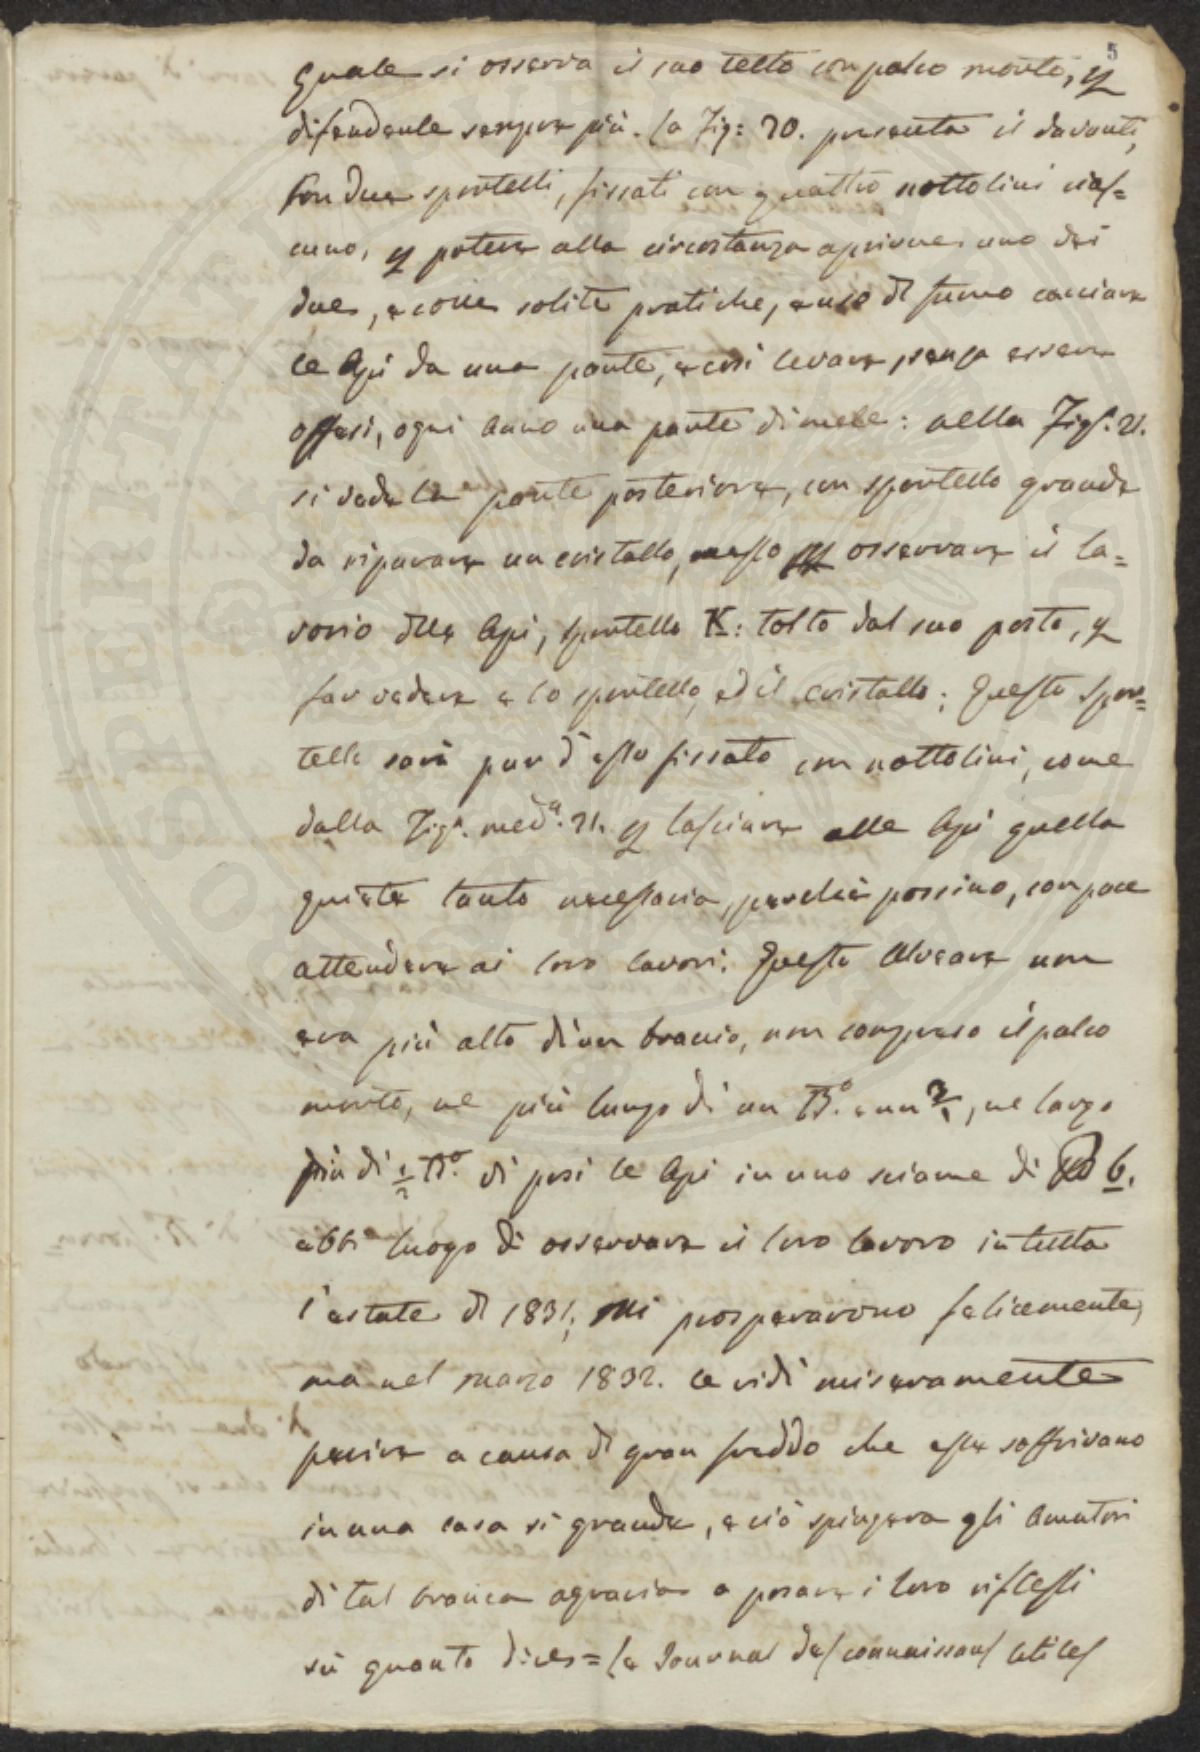 5
quale si osserva il suo tetto con palco morto, p
difendente sempre più. La Fig: 20. presenta il davanti,
con due sportelli, fissati con quattro nottolini cias=
cuno, p potere alla circostanza aprirne uno dei
due, e colle solite pratiche, e uso di fumo cacciare
le Api da una parte, e così levare, senza essere
offesi, ogni anno una parte di mele: nella Figa. 21.
si vede la parte posteriore, con sportello grande
da riparare un cristallo, messo p osservare il la=
vorio delle Api, sportello K: tolto dal suo posto, p
far vedere e lo sportello, ed il cristallo; Questo spor=
tello sarà pur d'esso fissato con nottolini, come
dalla Figa. meda. 21. p lasciare alle Api quella
quiete tanto necessaria, perchè possino, con pace
attendere ai loro lavori. Questo Alveare non
era più alto di un braccio, non compreso il palco
morto, ne più lungo di un Bo. e un 3/4, ne largo
più di 1/2 Bo. Vi posi le Api in uno sciame di 6.
ebbi luogo di osservare il loro lavoro in tutta
l'estate di 1831; Mi prosperarono felicemente,
ma nel marzo 1832. le vidi miseramente
perire a causa di gran freddo che esse soffrivano
in una casa sì grande, e ciò spingeva gli Amatori
di tal branca agraria a pesare i loro riflessi
su quanto dice = le Journal des connaissans utiles